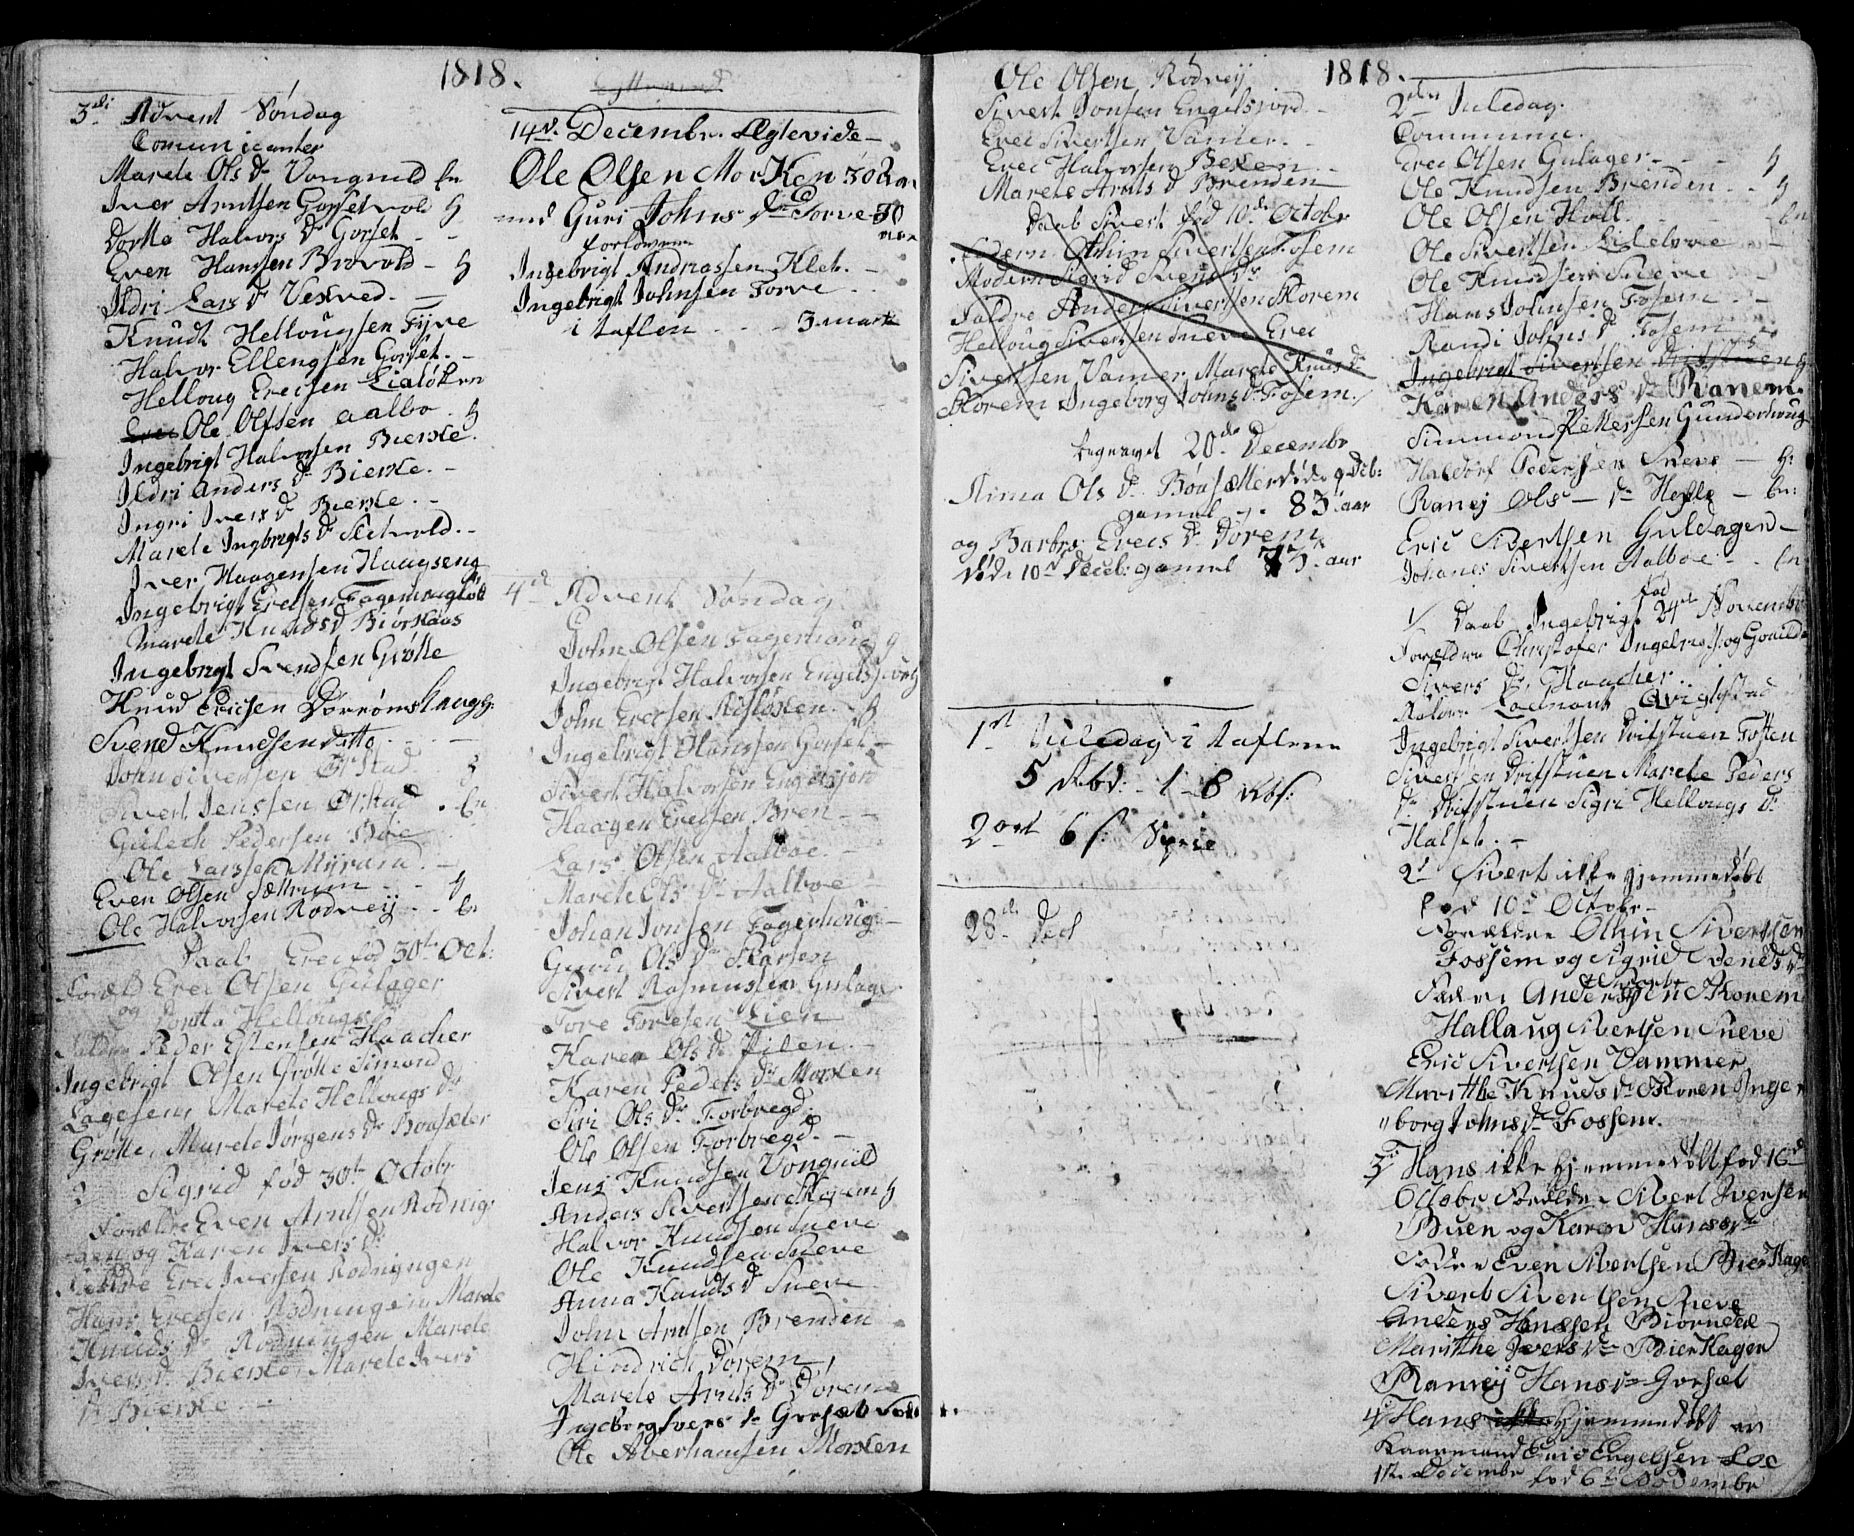 1818.
3di Advent Søndag
Comunicanter
Marete Ols Dr Vongnild fn
Iver Arntsen Gorsetvold h
Dortta Halvors Dr Gorset - -
Even Hansen Brovold - h
Ildri Lars Dr Vesved. -
Knudt Hellougsen Fyve
Halvor Ellengsen Gorset. -
Helloug Ericsen Lialøken
Ole Olssen aalbo. h
Ingebrigt Halvorsen Bierke.
Ildri Anders Dr Bierke. -
Ingri Ivers Dr Bierke. -
Marete Ingbrigts Dr Sletvold. -
Iver Haagensen Haagseng
Ingebrigt Ericsen Fagerhoug
Marete Knuds Dr Biørkaas
Ingebrigt Svendsen Grøtte
Knud Ericsen
Svend Knudsen ditto
John Siversen
Sivert Jenssen
Gulech Pedersen Bøe
Ole Larssen Myrmo
Even Olsen Sættrum - - h
Ole Halvorsen Rødvej - - fn
Daab Eric fød 30te Oct:
Foræld Eric Olsen Gulager
og Dortta Hellougs
Faddre Peder Estensen Haacher
Ingebrigt Olsen Grøtte Simond
Lagesen, Marete Hellougs Dr
Grøtte, Marete Jørgens Dr Bonsæter
2 Sigrid fød 30te Octobr
Forældre Even Arntsen Rødnig-
gen og Karen Ivers Dr
Faddre Eric Iversen Rødningen
Hans Ericsen Rødningen Marete
Knuds Dr Rødningen Marete
Ivers Dr Bierke, Marete Ivers
Dr Bierke. -
14d. Decembr. Ægtevide -
Ole Olsen Morken 30 aar
med Guri Johns Dr Forve 30
aar
forlovere
Ingebrigt Andreassen Kleb. -
Ingebrigt Johnsen Forve. .
i taflen - - - 3. mark
4d Advent Søndag
John Olsen Fagerhoug h
Ingebrigt Halvorsen Engelsjord
John Ericsen Risløkken. - h
Ingebrigt Hanssen Gorset -
Sivert Halvorsen Engelsjord
Haagen Ericsen Bren - -
Lars Olsen Aalboe. -
Marete Ols Dr Aalboe -
Johan Jonsen Fagerhoug -
Guru Ols Dr Skarsem
Sivert Rasmussen Gulager
Tore Toresen Lien
Karen Ols Dr Pilen. -
Karen Peders Dr Morken
Siri Ols Dr Forbregd.
Ole Olsen Forbregd. -
Jens Knudsen Vongnild
Anders Sivertsen Skorem h
Halvor Knudsen Sneve
Ole Knudsen Sneve
Anna Knuds Dr Sneve
John Arntsen Brenden
Hindrich Dorem,
Marete Arnts Dr Dorem
Ingeborg Ivers Dr Gorsæt
Ole Aberhamsen Morken
1818.
Ole Olsen Rødvej
Sivert Jonsen Engelsjord. -
Eric Sivertsen Vamer. -
Eric Halvorsen Beken -
Marete Arnts Dr Brenden
Daab Sivert fød 10de Octobr
Sivertsen Fosem
Modern Sigrid Svends Dr
Faldre Anders Sivertsen Skorem
Helloug Sivertsen Sneve Eric
Sivertsen Vamer, Marete Knuds Dr
Skorem Ingeborg Johns Dr Fosem.
begravet 20de Decembr
Ols Dr Bonsætter døde 9 Deb:
gamel - 83. aar
og Barbro Erics Dr Dorem
døde 10d Deceb: gamel 73. aar
1st Juledag i taflene
5 Rbd. - 1 - 8 Rbs:
2 ort 6 s: Specie
28d. Ded
2den Juledag.
Communion.
Eric Olsen Gulager - - - h
Ole Knudsen Brenden. - h
Ole Olsen Holl - - - fn
Ole Sivertsen Lilleboe -
Ole Knudsen Sneve - -
Hans Johnsen Fosem - -
Randi Johns Dr Fosem
Ingebrigt Sivertsen Drifstuen h
Karen Anders Dr Ranem.
Simmond Pettersen Gunderhoug
Haldorf Pedersen Sneve - h:
Ranej Ols - Dr Hesle - fn:
Eric Sivertsen Gulvagen -
Johanes Sivertsen Aalboe - . fn
fød
1/ Daab Ingebrigt 24de Novembr
Forældre Christofer Ingebrigts. og Gonild
Sivers Dr Haacher.
Ingebrigt Sivertsen Drifstuen Tosten
Sivertsen Drifstuen Marete Peders
Dr Drifstuen Sigri Hellougs Dr
Halset. -
2d Sivert ikke hjemmedøbt
fød 10d Octobr -
Forældre Othin Sivertsen
Fossem og Sigrid Svends Dr
Faddre Anders Sivertsen Skorem
Hallaug Sivertsen Sneve
Eric Sivertsen Vammer
Maritthe Knuds Dr Skoren Inge-
borg Johns Dr Fossem.
3 Hans ikke hjemmedøbt fød 16d
Octobr Forældre Sivert Iversen
Buen og Karen Hans Dr
Faddre Even Sivertsen Bierkage
Sivert Sivertsen Sneve
Anders Hansen Biørndal
Maritthe Ivers Dr Bierkager
Rannej Hans Dr Gorsæt
4 Hans ikke hjemmedøbt av
Eric Engelsen Loe
12. Decembr fød 6d Decembr